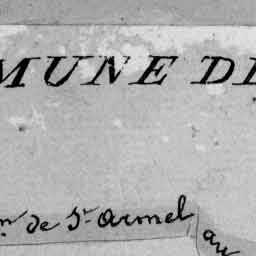 MUNE DE
on de St Armel
au